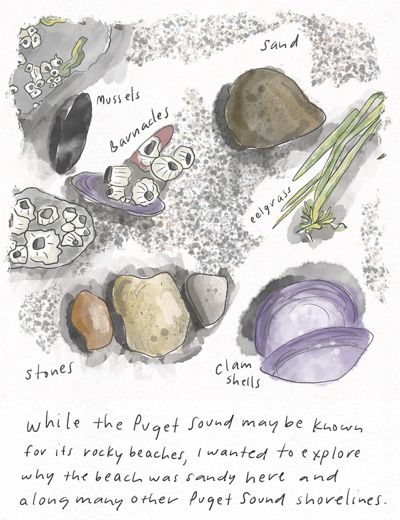 sand
Mussels
Barnacles
eelgrass
stones
Clam
shells
While the Puget Sound may be known
for its rocky beaches, I wanted to explore
why the beach was sandy here and
along many other Puget Sound shorelines.